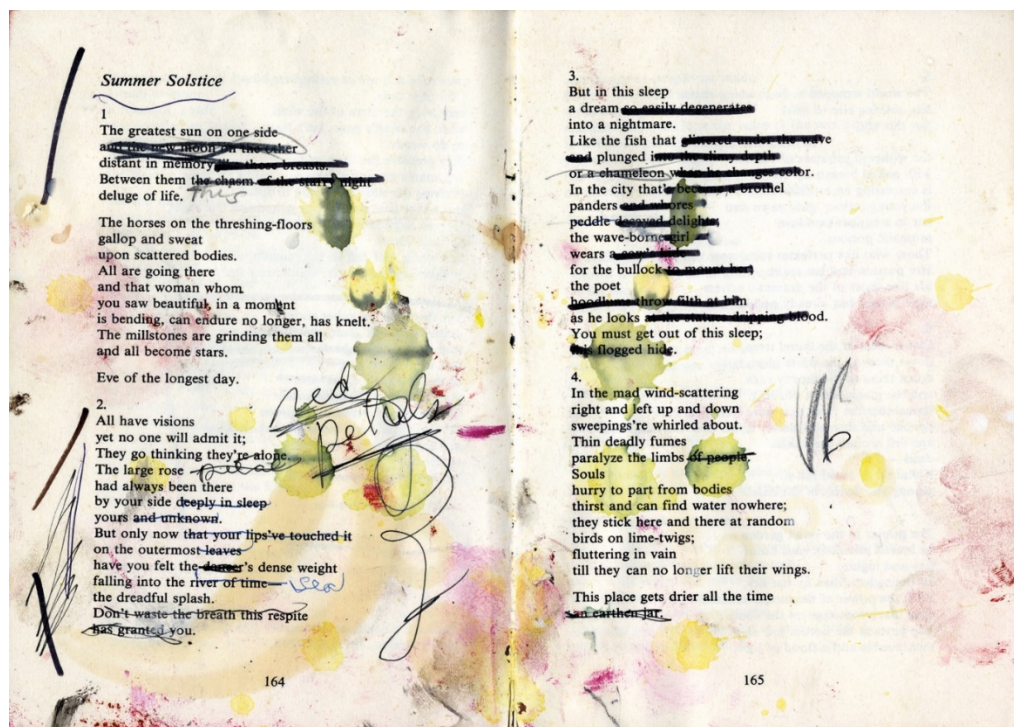 Summer Solstice
1
The greatest sun on one side
and the new moon on the other
distant in memory like those breasts.
Between them the chasm of the starry night
deluge of life.
The horses on the threshing-floors
gallop and sweat
upon scattered bodies.
All are going there
and that woman whom
you saw beautiful, in a moment
is bending, can endure no longer, has knelt.
The millstones are grinding them all
and all become stars.
Eve of the longest day.
2.
red
petals
All have visions
yet no one will admit it;
They go thinking they're alone.
The large rose petal
had always been there
by your side deeply in sleep
yours and unknown.
But only now that your lips've touched it
on the outermost leaves
have you felt the dancer's dense weight
falling into the river of time— sea
the dreadful splash.
Don't waste the breath this respite
has granted you.
164
3.
But in this sleep
a dream so easily degenerates
into a nightmare.
Like the fish that glittered under the wave
and plunged into the slimy depth
or a chameleon when he changes color.
In the city that's become a brothel
panders and whores
peddle decayed delights;
the wave-borne girl
wears a
for the bullock to mount her;
the poet
hoodlums throw filth at him
as he looks at the statues dripping blood.
You must get out of this sleep;
this flogged hide.
4.
In the mad wind-scattering
right and left up and down
sweepings're whirled about.
Thin deadly fumes
paralyze the limbs of people.
Souls
hurry to part from bodies
thirst and can find water nowhere;
they stick here and there at random
birds on lime-twigs;
fluttering in vain
till they can no longer lift their wings.
This place gets drier all the time
an earthen jar.
165